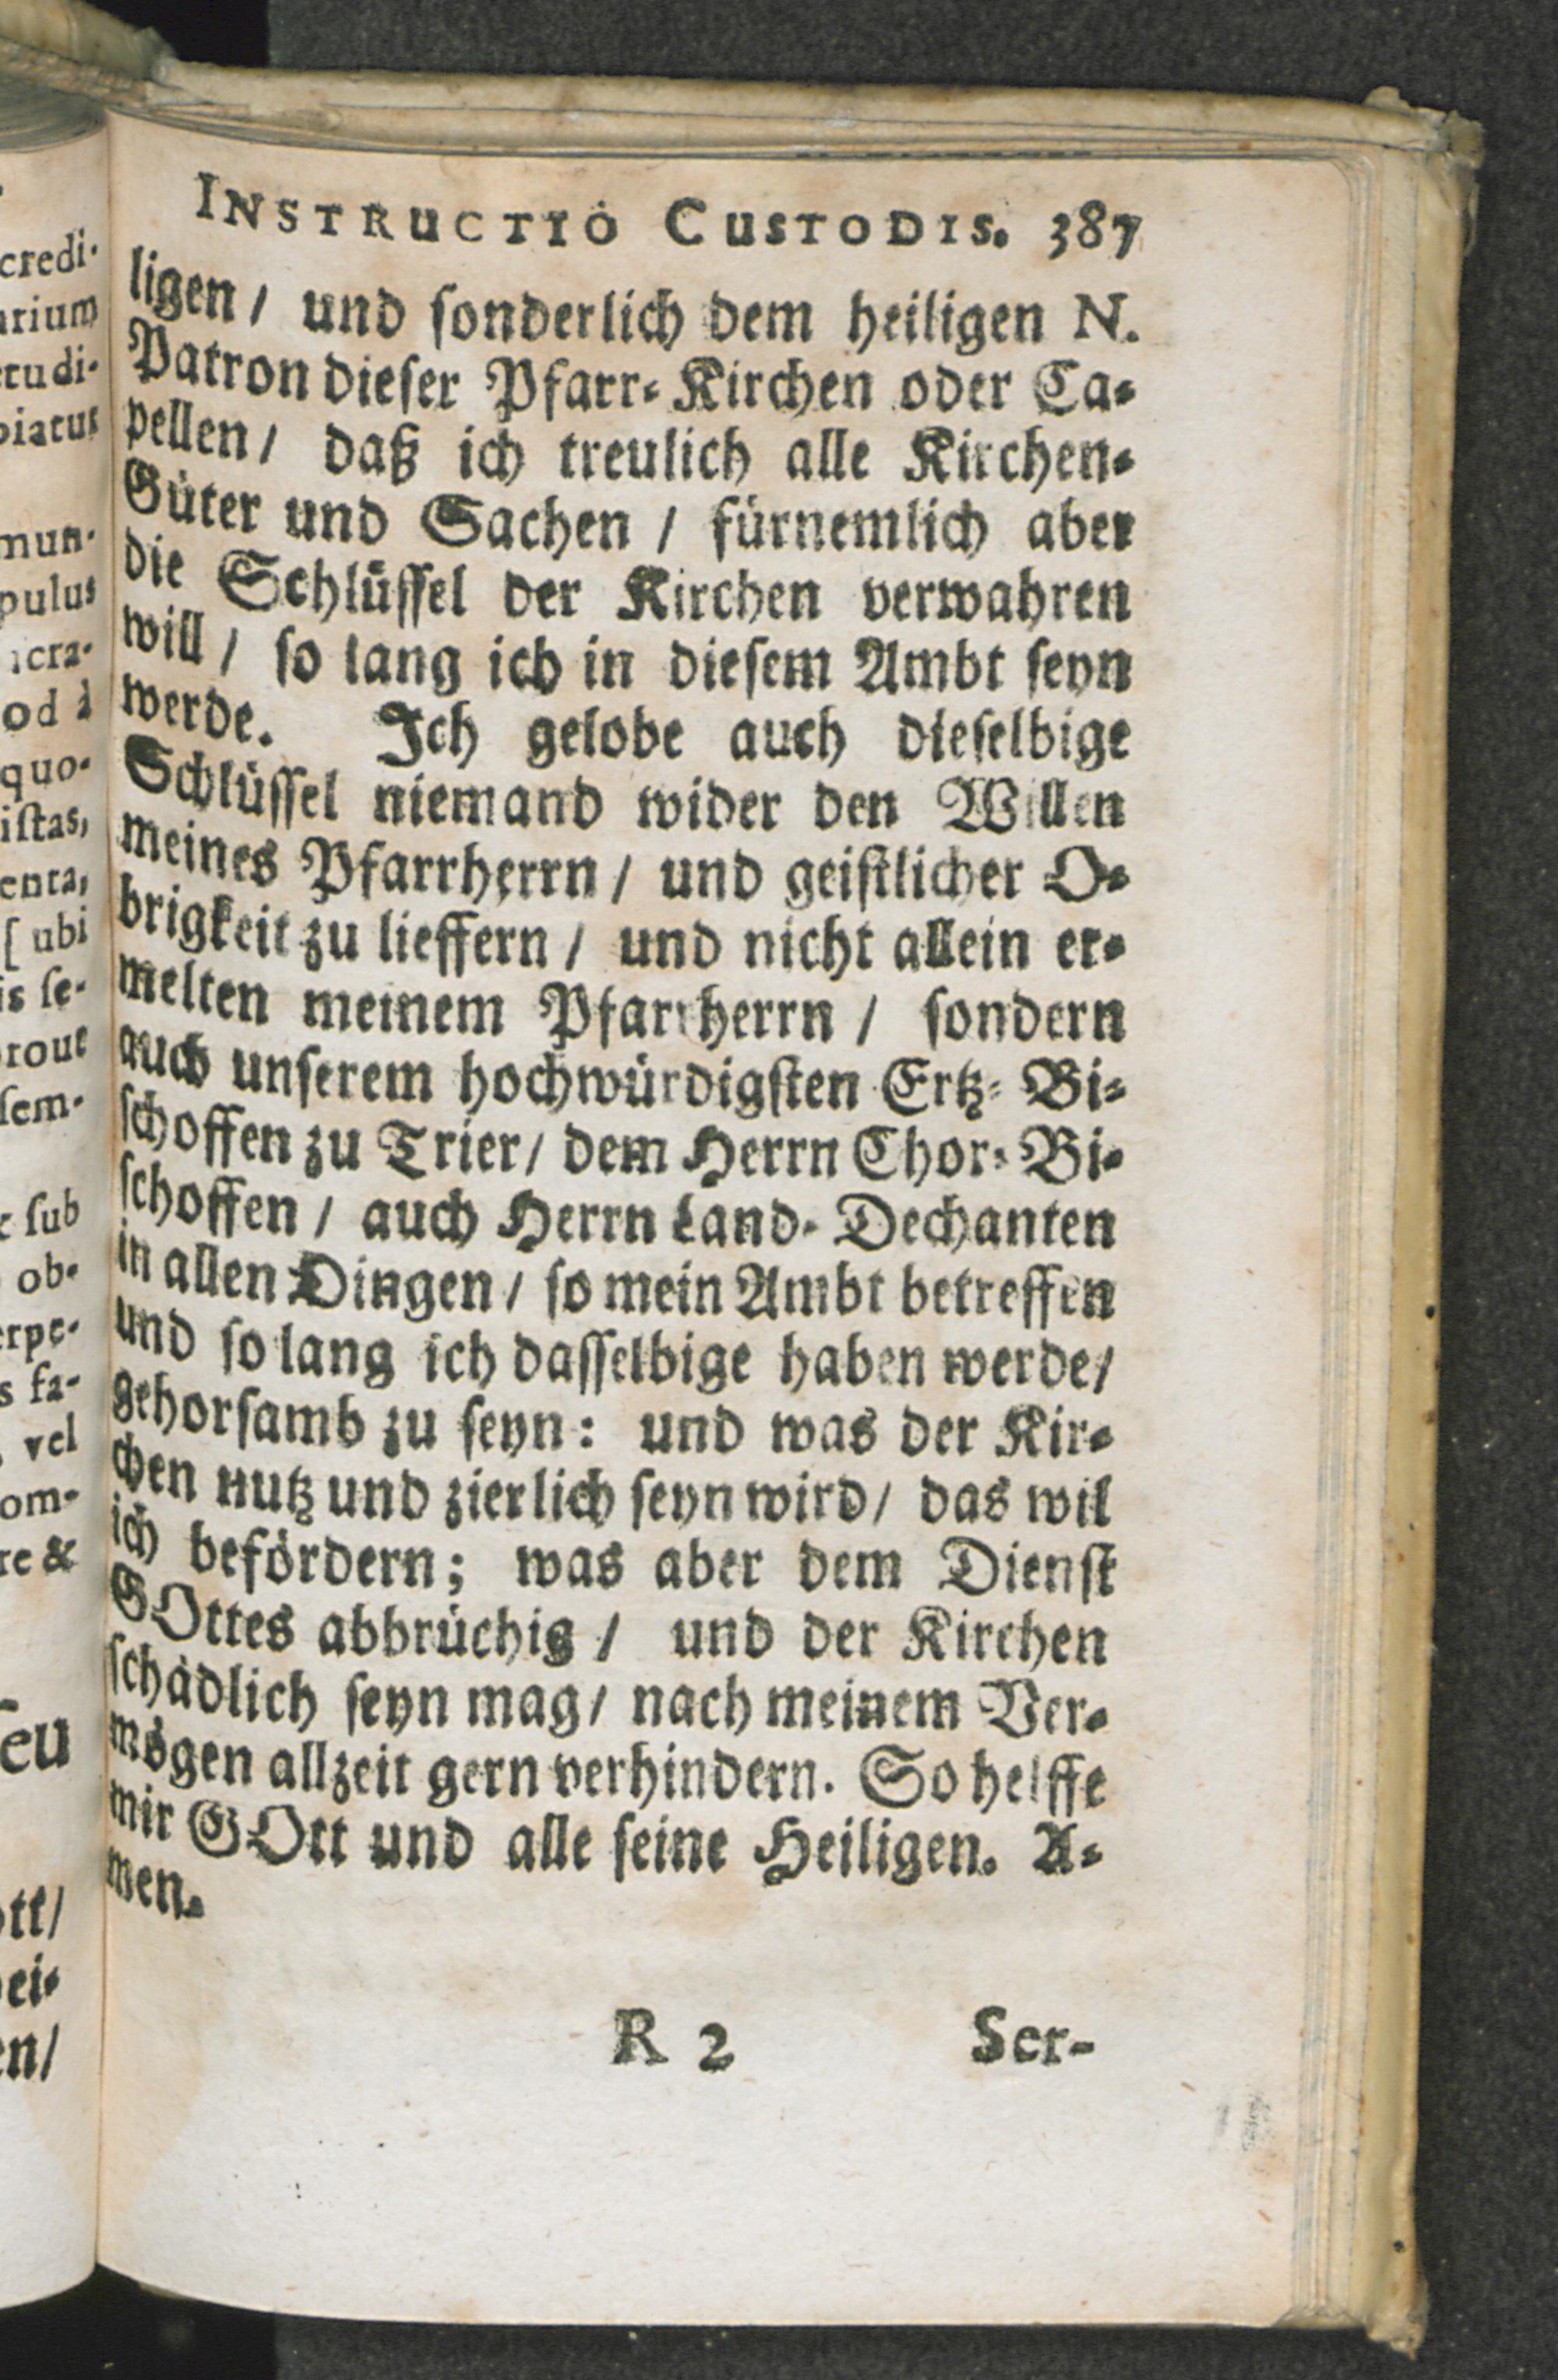 INSTRUCTIO CUSTODIS. 387
ligen / und ſonderlich dem heiligen N.
Patron dieſer Pfarr⸗Kirchen oder Ca⸗
pellen / daß ich treulich alle Kirchen⸗
Güter und Sachen / fürnemlich aber
die Schlüſſel der Kirchen verwahren
will / ſo lang ich in dieſem Ambt ſeyn
werde. Ich gelobe auch dieſelbige
Schlüſſel niemand wider den Willen
meines Pfarrherrn / und geiſtlicher O⸗
brigkeit zu lieffern / und nicht allein er⸗
melten meinem Pfarrherrn / ſondern
auch unſerem hochwürdigſten Ertz⸗Bi⸗
ſchoffen zu Trier / dem Herrn Chor⸗Bi⸗
ſchoffen / auch Herrn Land⸗Dechanten
in allen Dingen / ſo mein Ambt betreffen
und ſo lang ich daſſelbige haben werde /
gehorſamb zu ſeyn: und was der Kir⸗
chen nutz und zierlich ſeyn wird / das wil
ich befördern; was aber dem Dienſt
GOttes abbrüchig / und der Kirchen
ſchädlich ſeyn mag / nach meinem Ver⸗
mögen allzeit gern verhindern. So helffe
mir GOtt und alle ſeine Heiligen. A⸗
men.
R 2 Ser-